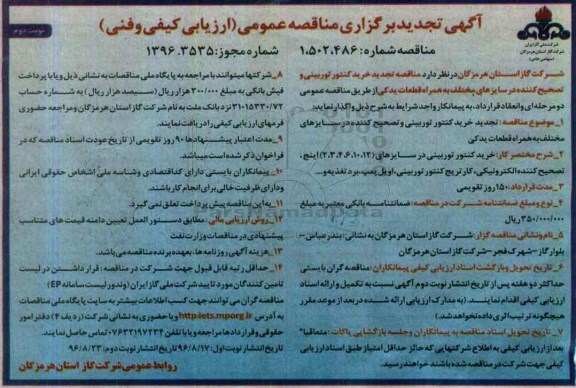 آگهی تجدید برگزاری مناقصه عمومی (ارزیابی کیفی و فنی)
نوبت دوم
شرکت ملی گاز ایران
شرکت گاز استان هرمزگان
(سهامی خاص)
مناقصه شماره: ۱،۵۰۲،۴۸۶
شماره مجوز: ۱۳۹۶.۳۵۳۵
شرکت گاز استان هرمزگان در نظر دارد مناقصه تجدید خرید کنتور توربینی و
تصحیح کننده در سایزهای مختلف به همراه قطعات یدکی از طریق مناقصه عمومی
دو مرحله ای و انعقاد قرارداد، به پیمانکار واجد شرایط به شرح ذیل واگذار نماید:
۱_ موضوع مناقصه: تجدید خرید کنتور توربینی و تصحیح کننده در سایزهای
مختلف به همراه قطعات یدکی
۲_ شرح مختصر کار: خرید کنتور توربینی در سایزهای (۲،۳،۴،۶،۱۰،۱۲) اینچ،
تصحیح کننده الکترونیکی، کارتریج کنتور توربینی، اویل پمپ، برد تغذیه و...
۳_ مدت قرارداد: ۱۵۰ روز تقویمی
۴_ نوع و مبلغ ضمانتنامه شرکت در مناقصه: ضمانتنامه بانکی معتبر به مبلغ
۳۵۰/۰۰۰/۰۰۰ ریال
۵_ نام و نشانی مناقصه گزار: شرکت گاز استان هرمزگان به نشانی: بندرعباس –
بلوار گاز – شهرک فجر – شرکت گاز استان هرمزگان
۶_ تاریخ تحویل و بازگشت اسناد ارزیابی کیفی پیمانکاران: مناقصه گران بایستی
حداکثر دو هفته پس از تاریخ انتشار نوبت دوم آگهی نسبت به تکمیل و ارائه اسناد
ارزیابی کیفی اقدام نمایند. (به مدارک ارزیابی ارائه شده در بعد از موعد مقرر
هیچگونه ترتیب اثری داده نخواهد شد)
۷_ تاریخ تحویل اسناد مناقصه به پیمانکاران و جلسه بازگشایی پاکات: متعاقبا"
بعد از ارزیابی کیفی به اطلاع شرکتهایی که حائز حداقل امتیاز طبق اسناد ارزیابی
کیفی جهت شرکت در مناقصه شده باشند خواهد رسید.
۸_ شرکتها میتوانند با مراجعه به پایگاه ملی مناقصات به نشانی ذیل و یا با پرداخت
فیش بانکی به مبلغ ۳۰۰/۰۰۰ ریال (سیصد هزار ریال) به شماره حساب
۳۱۰۱۵۳۳۰/۷۲ نزد بانک ملت به نام شرکت گاز استان هرمزگان و مراجعه حضوری
فرمهای ارزیابی کیفی را دریافت نمایند.
۹_ مدت اعتبار پیشنهادها ۹۰ روز تقویمی از تاریخ عودت اسناد مناقصه که در
فراخوان ذکر شده است میباشد.
۱۰_ پیمانکاران بایستی دارای کد اقتصادی و شناسه ملی اشخاص حقوقی ایرانی
و دارای ظرفیت خالی برای انجام کار باشند.
۱۱_ به این مناقصه پیش پرداخت تعلق نمی گیرد.
۱۲_ روش ارزیابی مالی: مطابق دستورالعمل تعیین دامنه قیمت های متناسب
پیشنهادی در مناقصات وزارت نفت
۱۳_ هزینه آگهی روزنامه ها، بعهده برنده مناقصه می باشد.
۱۴_ حداقل رتبه قابل قبول جهت شرکت در مناقصه: قرار داشتن در لیست
تامین کنندگان مورد تایید شرکت ملی گاز ایران (وندور لیست سامانه EP)
مناقصه گران می توانند جهت کسب اطلاعات بیشتر به سایت پایگاه ملی مناقصات
به آدرس http:iets.mporg.ir و یا حضوری به نشانی شرکت (ردیف ۴) دفتر امور
حقوقی و قراردادها مراجعه و یا با تلفن ۰۷۶۳۲۱۹۲۲۳۴ تماس حاصل نمایند.
تاریخ انتشار نوبت اول: ۹۶/۸/۱۷ تاریخ انتشار نوبت دوم: ۹۶/۸/۲۳
روابط عمومی شرکت گاز استان هرمزگان